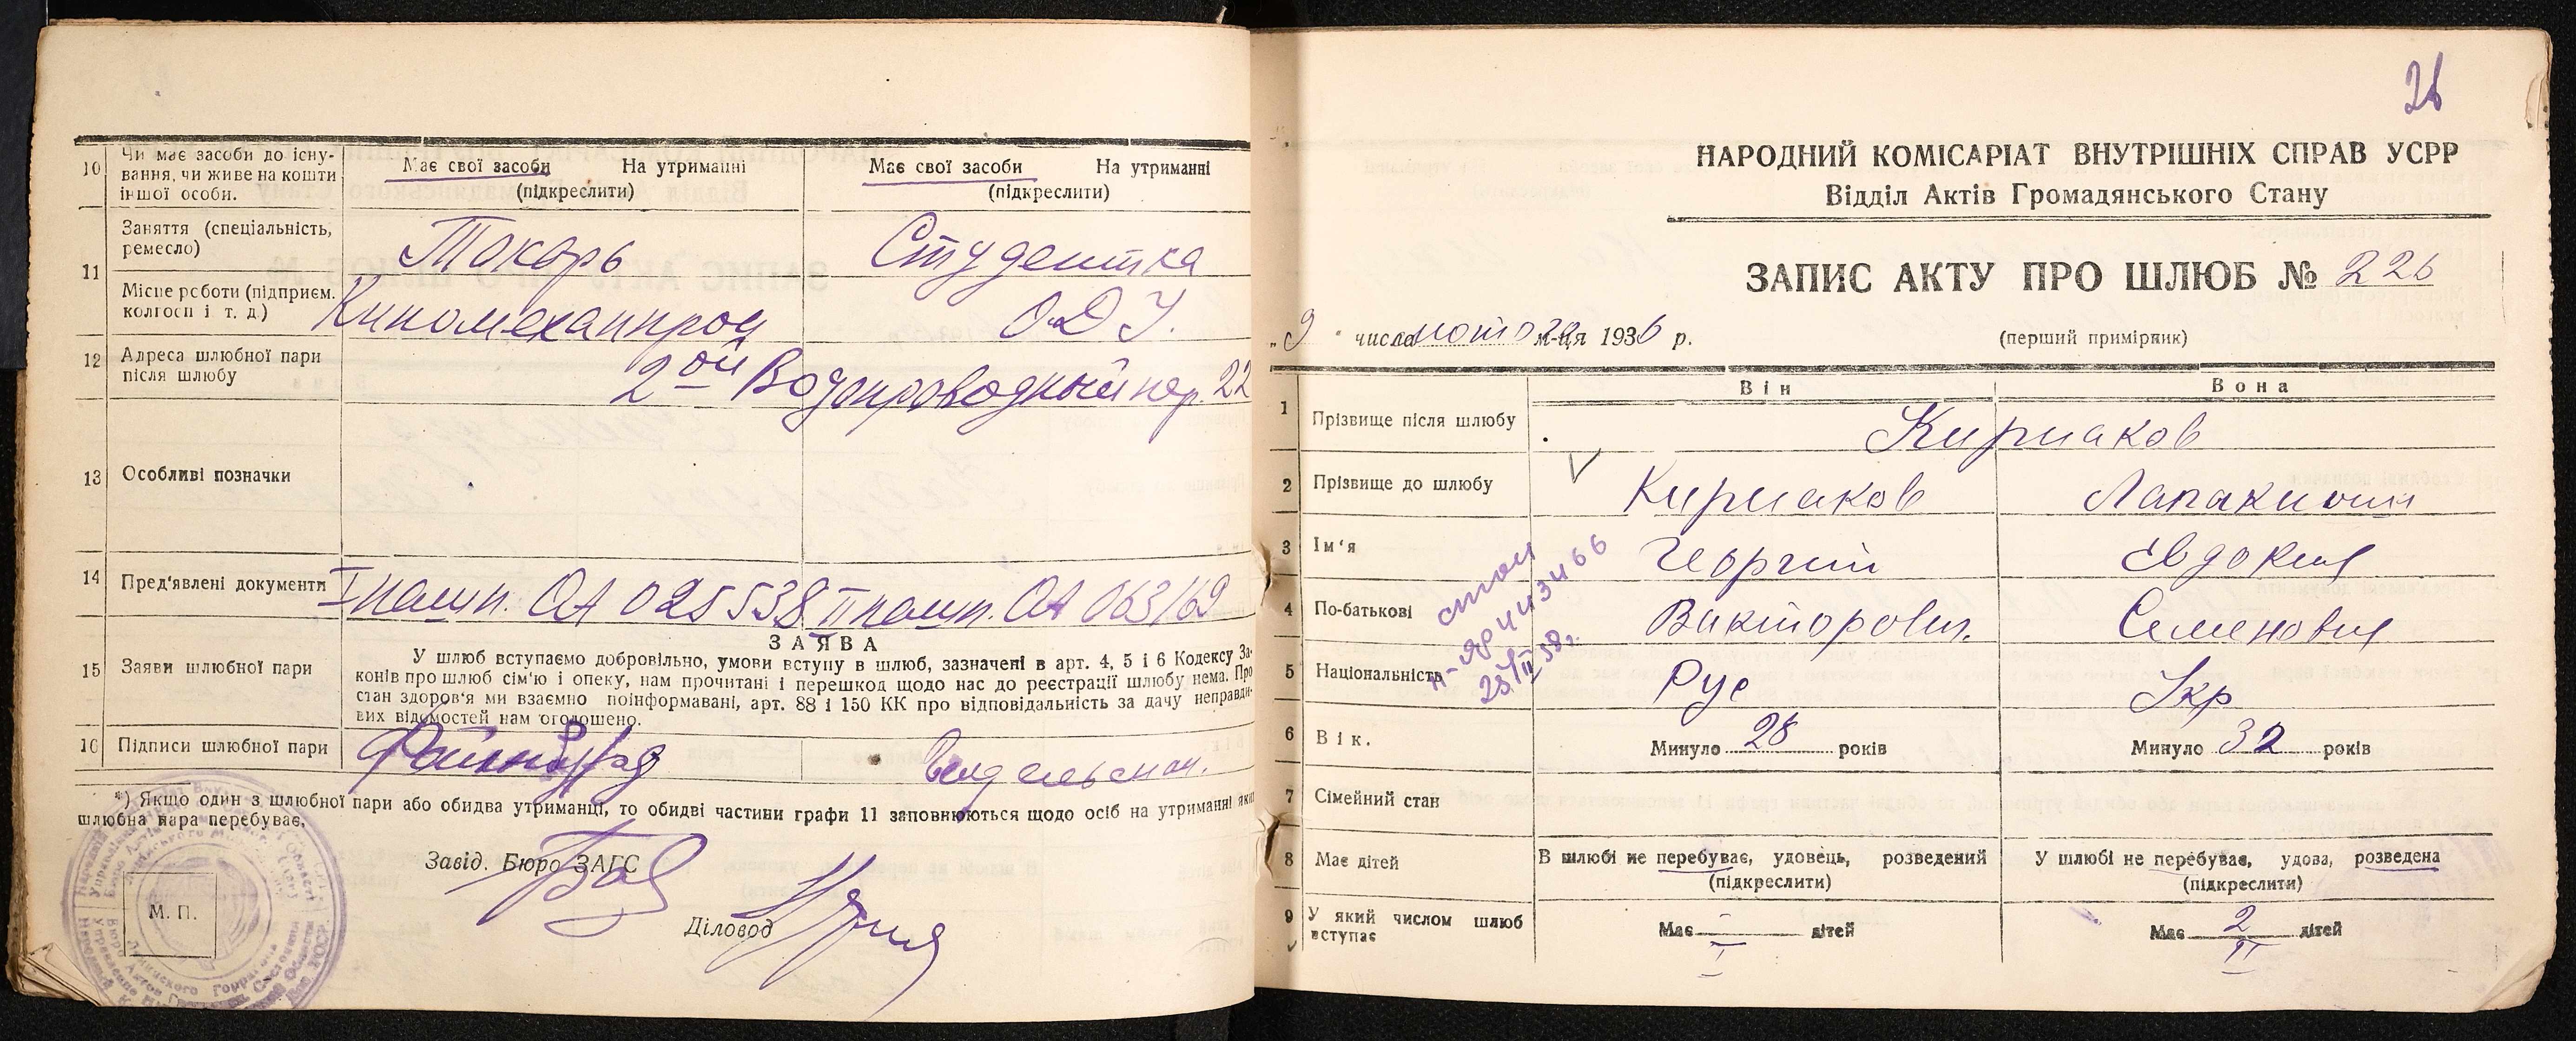 10 Чи має засоби до існу-
вання, чи живе на кошти
іншої особи.
Має свої засоби На утриманні
(підкреслити)
Має свої засоби На утриманні
(підкреслити)
11 Заняття (спеціальність,
ремесло)
Токарь
Студентка
Місце роботи (підприєм.
колгосп і т. д.)
Киномехаппром
О.Д.У.
12 Адреса шлюбної пари
після шлюбу
2ой Водопроводный пер. 22
13 Особливі позначки
14 Пред'явлені документи
I пашп. ОА 025538 II пашп. ОА 063169
15 Заяви шлюбної пари
ЗАЯВА
У шлюб вступаємо добровільно, умови вступу в шлюб, зазначені в арт. 4, 5 і 6 Кодексу За-
конів про шлюб сім'ю і опеку, нам прочитані і перешкод щодо нас до реєстрації шлюбу нема. Про
стан здоров'я ми взаємно поінформавані, арт. 88 і 150 КК про відповідальність за дачу неправди-
вих відомостей нам оголошено.
16 Підписи шлюбної пари
*) Якщо один з шлюбної пари або обидва утриманці, то обидві частини графи 11 заповнюються щодо осіб на утриманні яких
шлюбна пара перебуває.
Завід. Бюро ЗАГС
М. П.
Діловод
26
НАРОДНИЙ КОМІСАРІАТ ВНУТРІШНІХ СПРАВ УСРР
Відділ Актів Громадянського Стану
ЗАПИС АКТУ ПРО ШЛЮБ № 226
"9" числа лютого м-ця 1936 р.
(перший примірник)
Він Вона
1 Прізвище після шлюбу
Кириаков
2 Прізвище до шлюбу
Кириаков
3 Ім'я
Георгий
Евдокия
4 По-батькові
Викторович.
Семеновия
5 Національність
Рус
Укр
6 Вік.
Минуло 28 років
Минуло 32 років
7 Сімейний стан
8 Має дітей
В шлюбі не перебуває, удовець, розведений
(підкреслити)
У шлюбі не перебуває, удова, розведена
(підкреслити)
9 У який числом шлюб
вступає
Має - дітей
I
Має 2 дітей
II